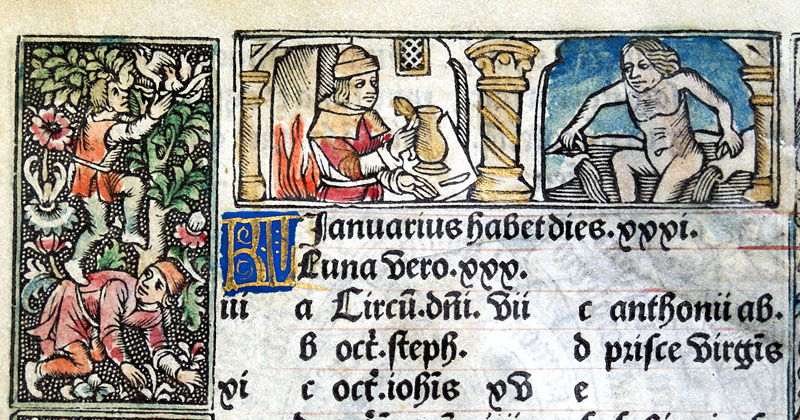 KL Januarius habet dies.xxxi.
Luna vero.xxx.
iii a Circū.dñi. vii c anthonii ab.
b oct̄.steph. d prisce virgīs
xi c oct̄.iohīs xv e